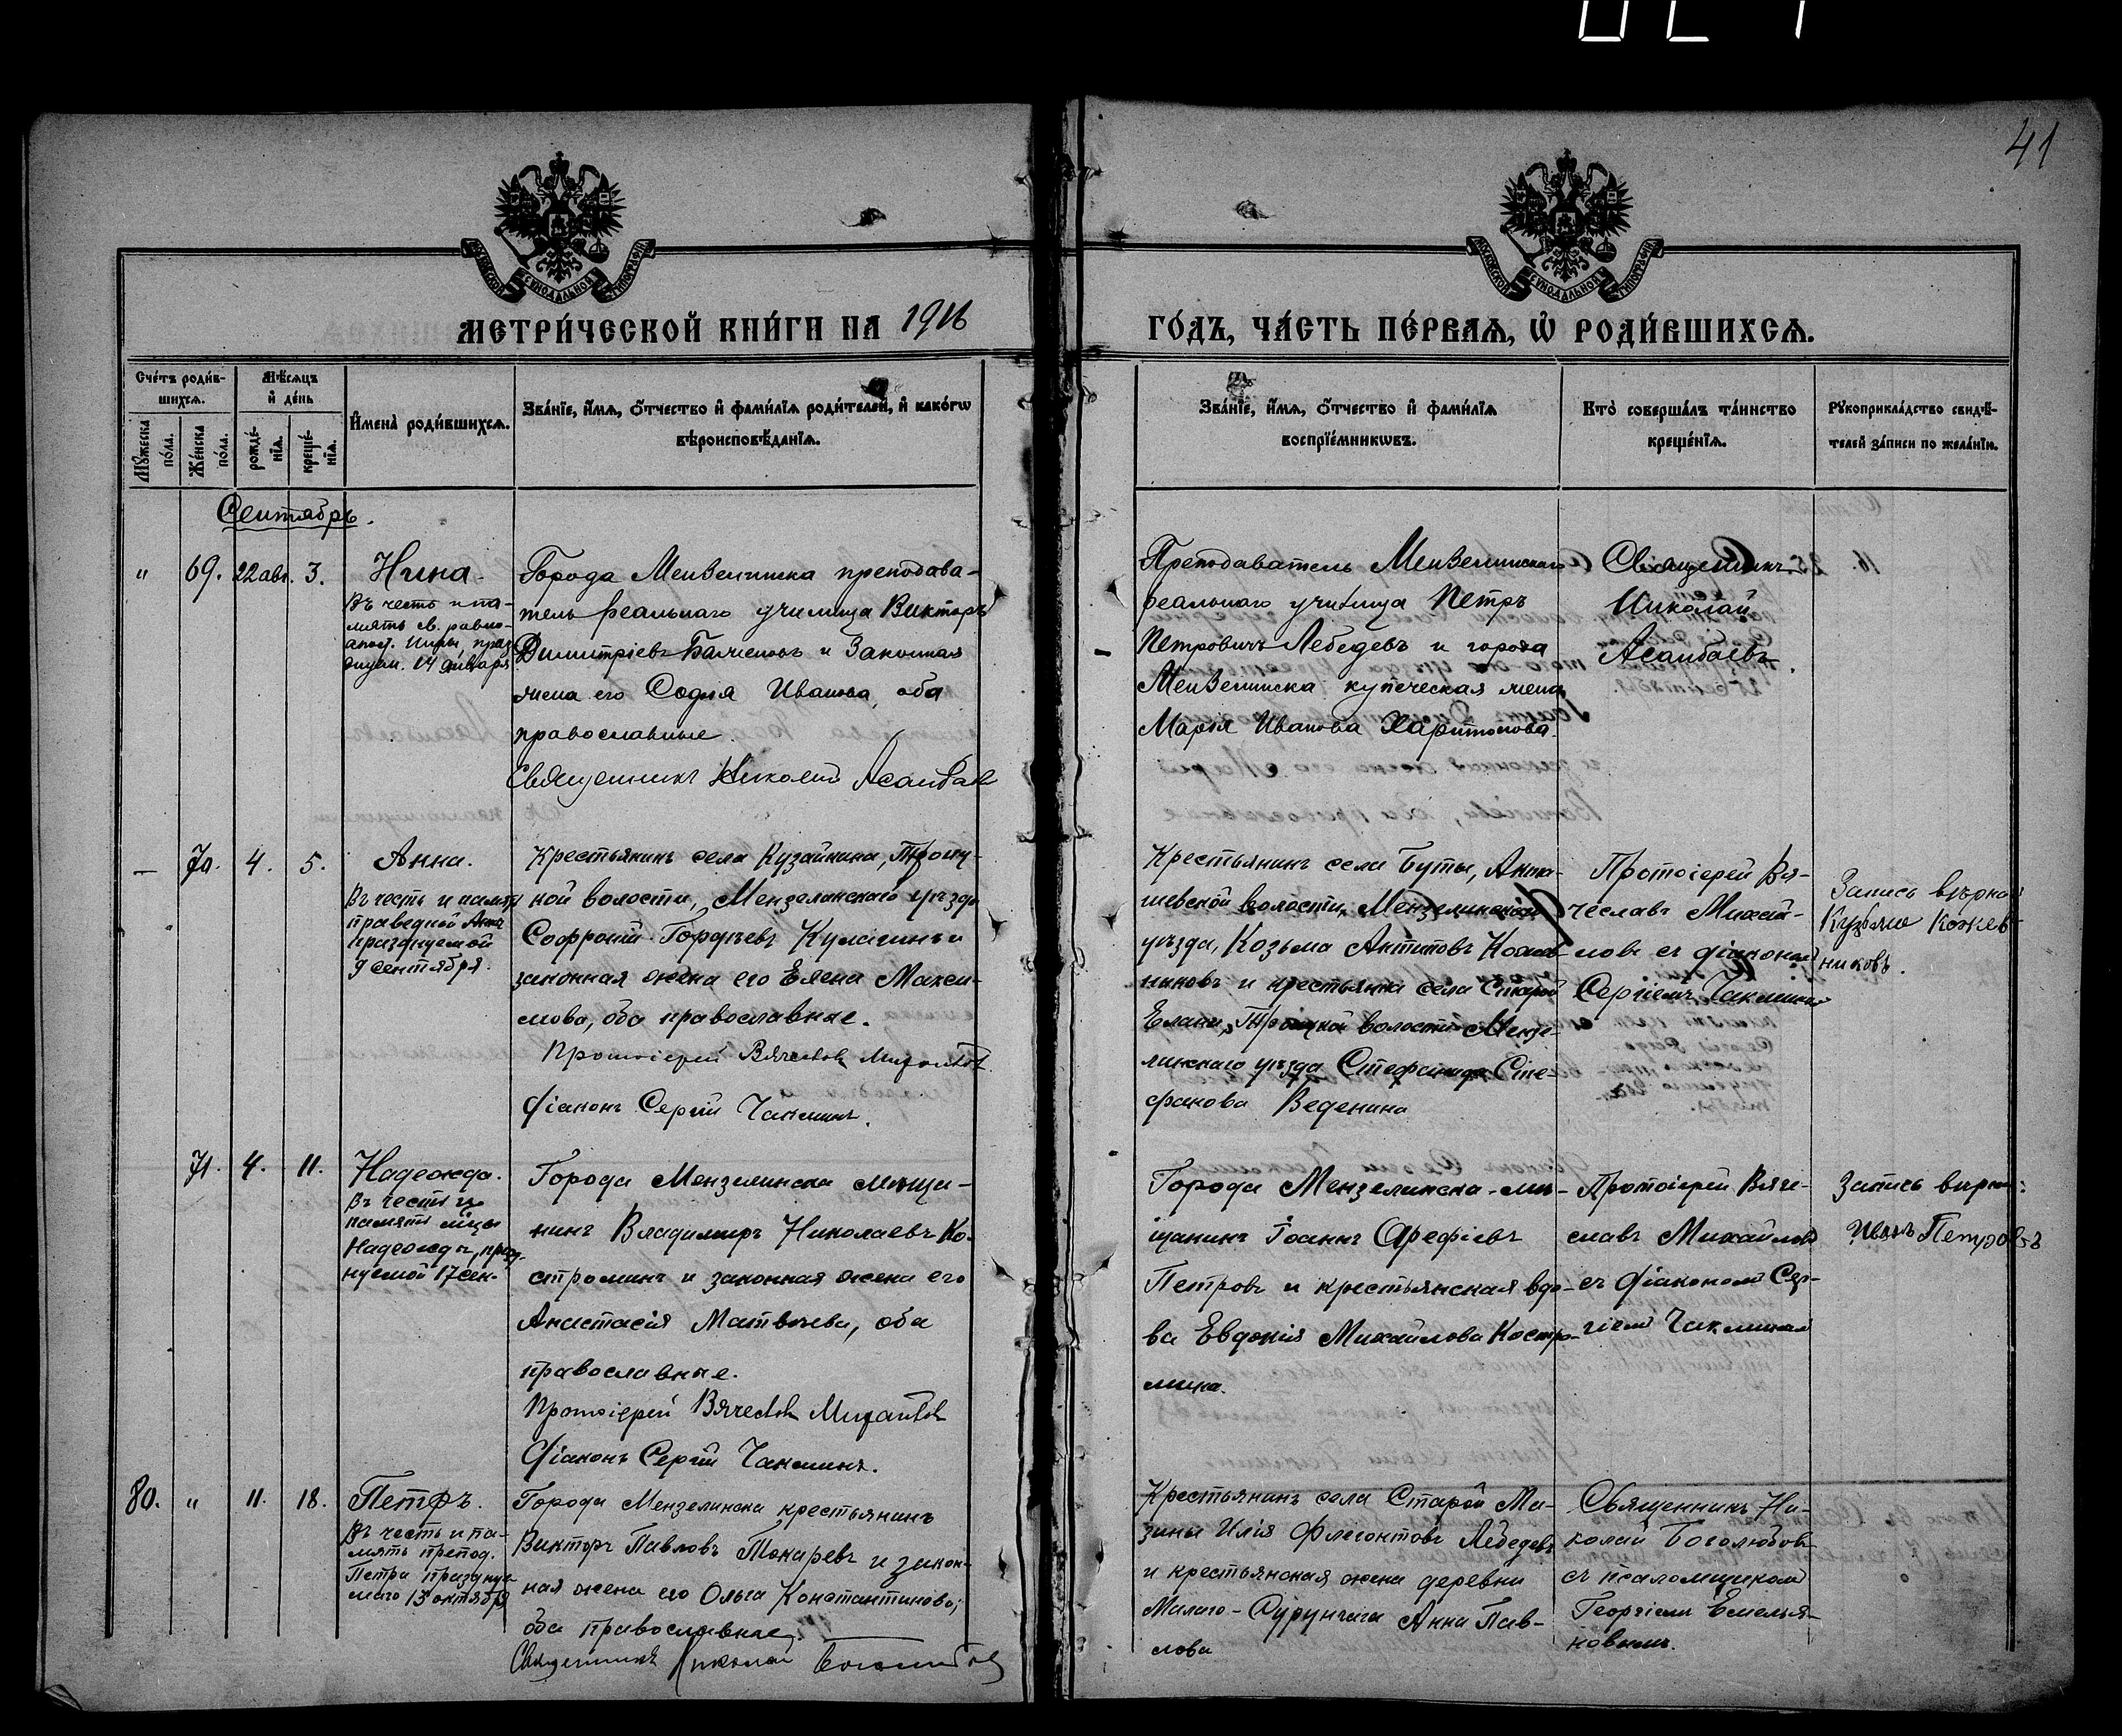 41
МОСКОВСКОЙ СѴНОДАЛЬНОЙ ТИПОГРАФІИ
МОСКОВСКОЙ СѴНОДАЛЬНОЙ ТИПОГРАФІИ
МЕТРИ́ЧЕСКОЙ КНИ́ГИ НА 1916
ГО́ДЪ, ЧА́СТЬ ПЕ́РВАЯ, Ѡ҆ РОДИ́ВШИХСЯ.
Сче́тъ роди́в-
шихся.
Мѣ́сяцъ
и҆ де́нь
Мꙋ́жеска по́ла.
Же́нска по́ла.
рожде́-нїя.
креще́-нїя.
И҆мена̀ роди́вшихся.
Зва́нїе, и҆́мя, о҆́тчество и҆ фами́лїя роди́телей, и҆ како́гѡ
вѣроисповѣ́данїя.
Зва́нїе, и҆́мя, о҆́тчество и҆ фами́лїя
воспрїе́мникѡвъ.
Кто̀ соверша́лъ та́инство
креще́нїя.
Рꙋкоприкла́дство свидѣ́-
телей за́писи по жела́нїю.
Сентябрь.
" 69. 22 авг. 3. Нина.
Въ честь и па-
мять св. равно-
апост. Нины, праз
днуем. 14 января
Города Мензелинска преподава-
тель реальнаго училища Викторъ
Димитріевъ и Законная
жена его Софія Иванова, оба
православные.
Священникъ Николай Асанбаев
Преподаватель Мензелинскаго
реальнаго училища Петръ
Петровичъ Лебедевъ и города
Мензелинска купеческая жена
Марія Иванова Харитонова.
Священникъ
Николай
Асанбаевъ.
— 70. 4. 5. Анна.
Въ честь и память
праведной Анны
празднуемой
9 сентября.
Крестьянинъ села Кузайкина, Троиц-
кой волости, Мензелинскаго уѣзда
Софроній Гордѣевъ Кулагинъ и
законная жена его Елена Макси-
мова, оба православные.
Протоіерей Вячеславъ Михайловъ
Діаконъ Сергій Чакминъ.
Крестьянинъ села Буты,
волости, Мензелинскаго
уѣзда, Козьма Антиповъ Кожев-
никовъ и крестьянка села Старой
Елани, Троицкой волости Мензе-
линскаго уѣзда Стефанида Сте-
фанова Веденина
Протоіерей Вя-
чеславъ Михай-
ловъ съ діаконом
Сергіемъ Чакминым
Запись вѣрна:
Кузьма Кожев-
никовъ.
71. 4. 11. Надежда.
Въ честь и
память мцы
Надежды, празд-
нуемой 17 сен.
Города Мензелинска мѣща-
нинъ Владимиръ Николаевъ Ко-
строминъ и законная жена его
Анастасія Матвѣева, оба
православные.
Протоіерей Вячеславъ Михайловъ
Діаконъ Сергій Чакминъ.
Города Мензелинска мѣ-
щанинъ Іоаннъ Арефіевъ
Петровъ и крестьянская вдо-
ва Евдокія Михайлова Костро-
мина.
Протоіерей Вяче-
славъ Михайловъ
съ діакономъ Сер-
гіем Чакминым
Запись вѣрна:
Иванъ Петровъ
80. " 11. 18. Петръ.
Въ честь и па-
мять препод.
Петра праздну-
маго 13 октября
Города Мензелинска крестьянинъ
Викторъ Павловъ Токаревъ и закон-
ная жена его Ольга Константинова,
оба православные.
Священникъ Николай Боголюбов
Крестьянинъ села Старой Ма-
зины Илія Флегонтовъ Лебедевъ
и крестьянская жена деревни
Малаго- Анна Пав-
лова
Священникъ Ни-
колай Боголюбовъ
съ псаломщикомъ
Георгіемъ Емелья-
новымъ.